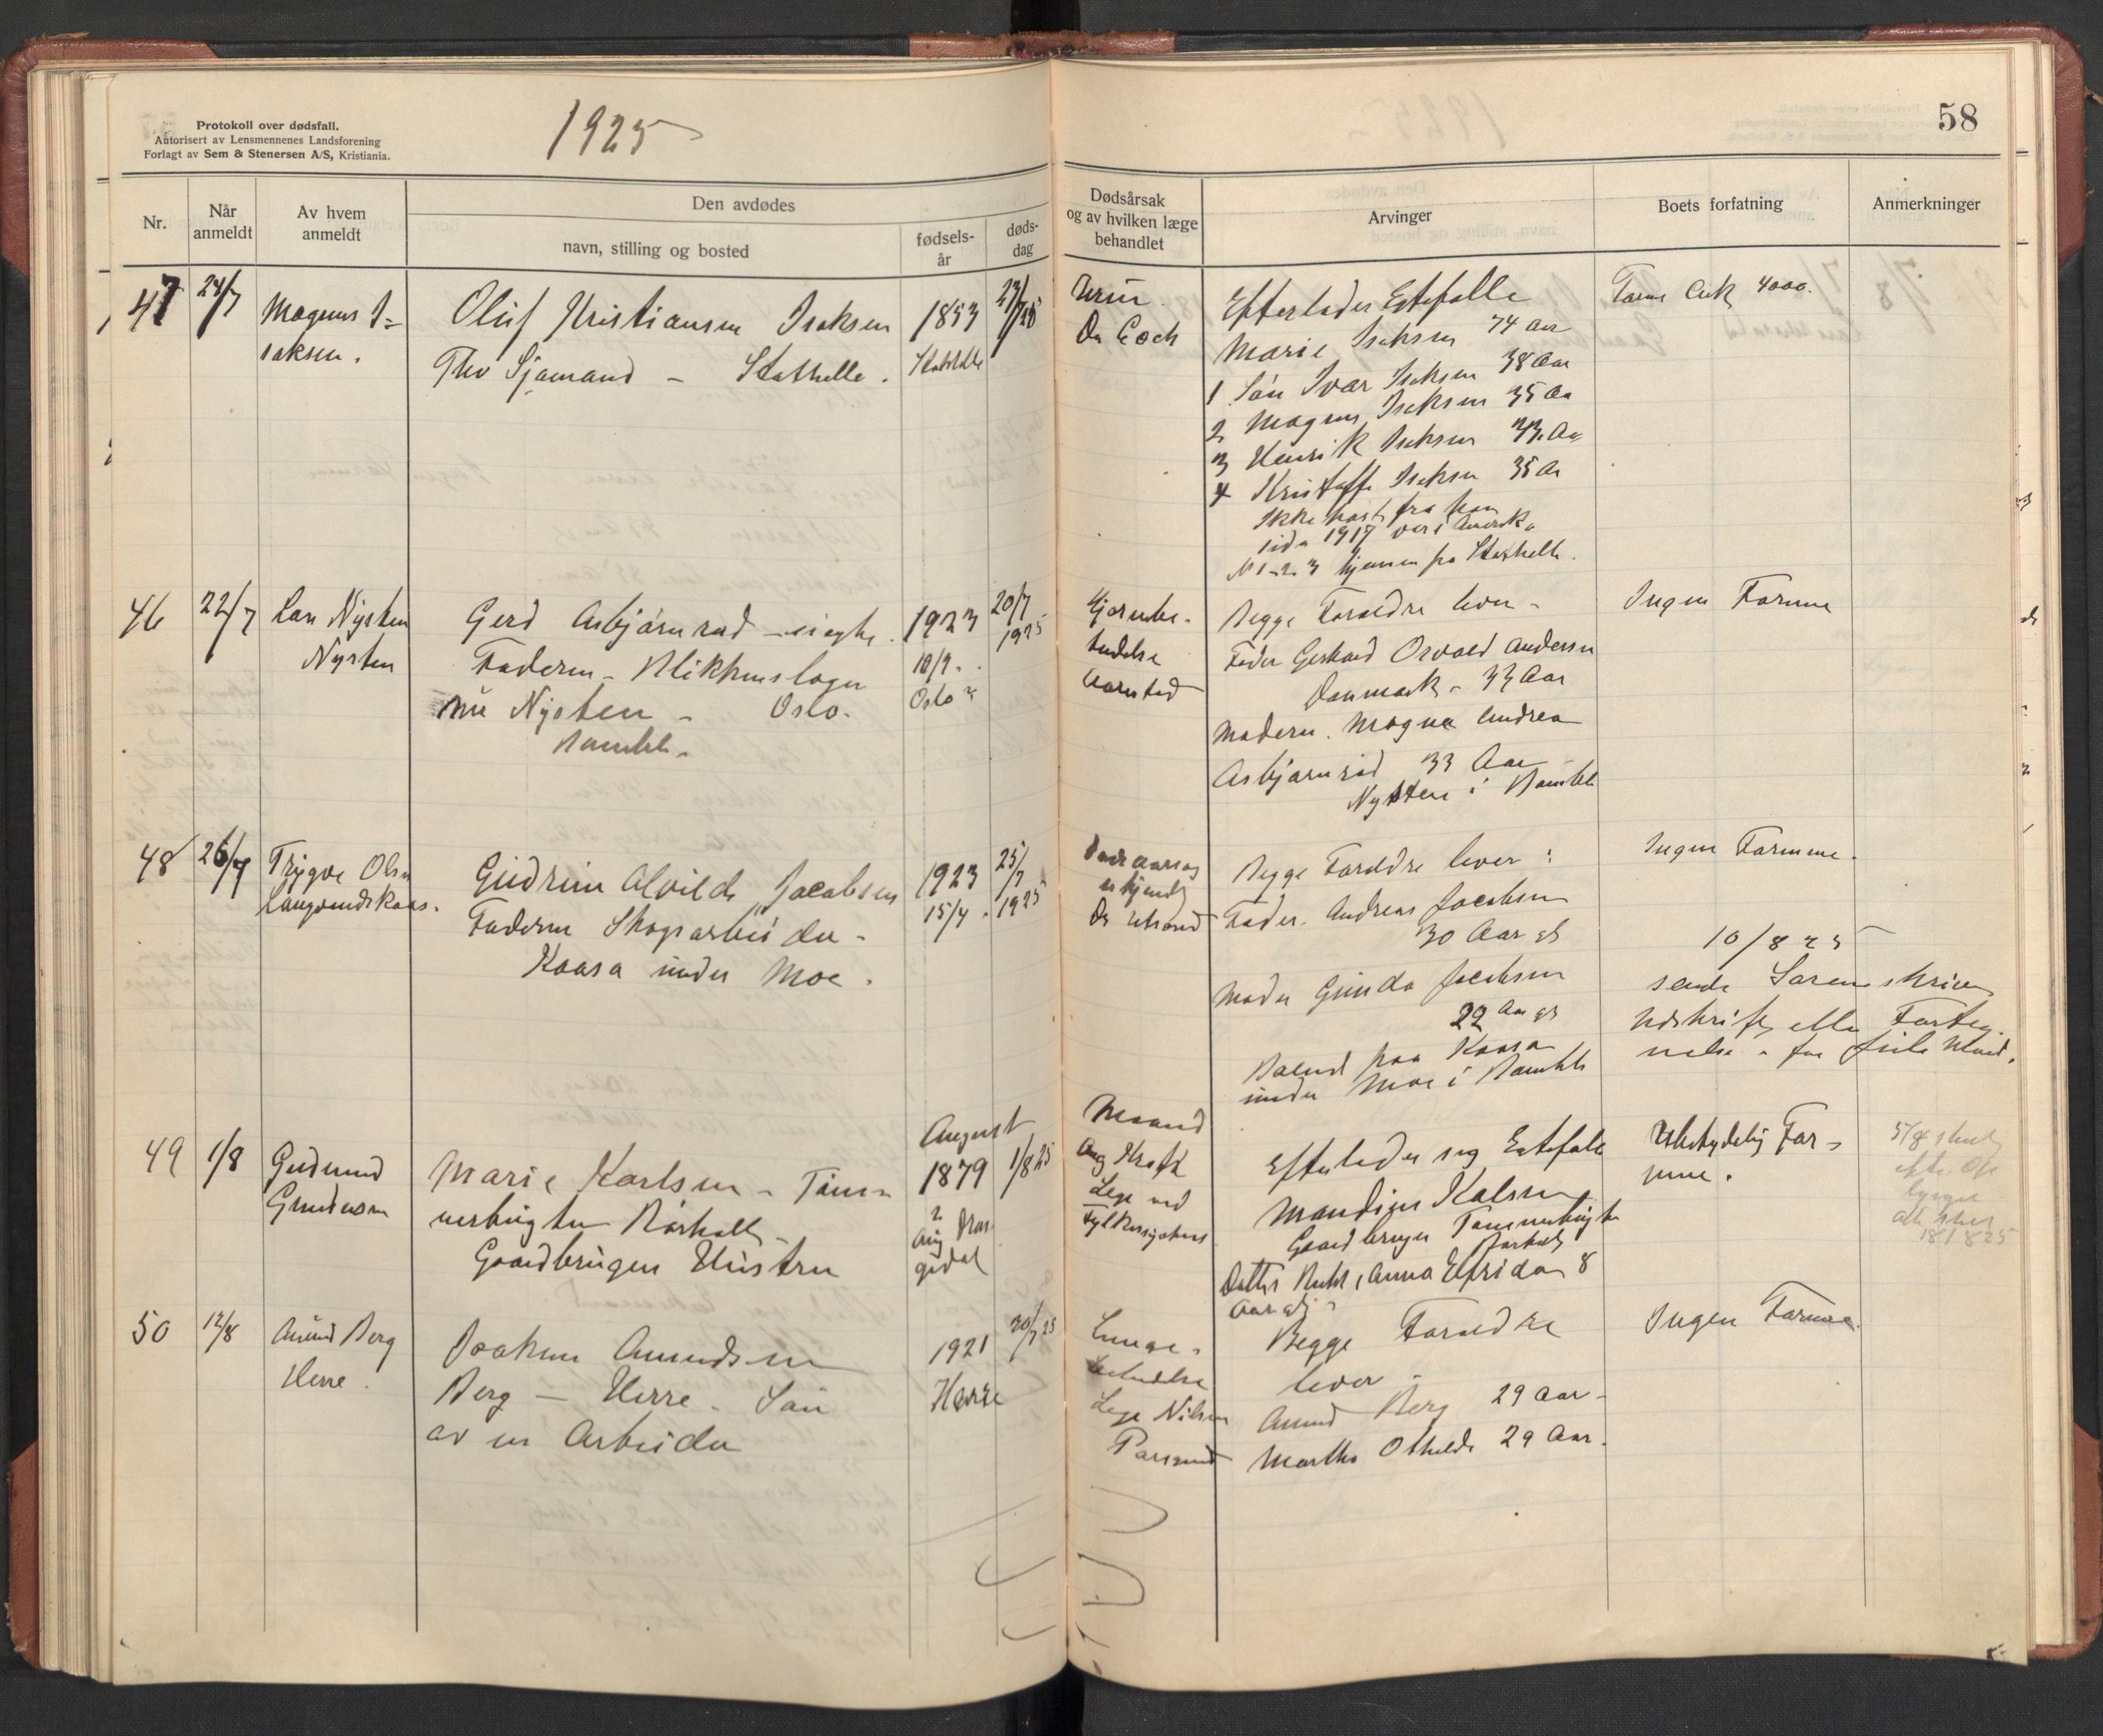 Protokoll over dødsfall.
Autorisert av Lensmennenes Landsforening
Forlagt av Sem & Stenersen A/S, Kristiania.
1925
58
Nr.
Når anmeldt
Av hvem anmeldt
Den avdødes
navn, stilling og bosted
fødsels-år
døds-dag
Dødsårsak og av hvilken læge behandlet
Arvinger
Boets forfatning
Anmerkninger
47
24/7
Magnus I=
saksen.
Oluf Kristiansen Isaksen
Fhv Sjømand - Stathelle.
1853
Stathelle
23/7 25
Urin
Dr Coch
Efterlader Egtefelle
Marie Isaksen 74 Aar
1 Søn Ivar Isaksen 38 Aar
2 Magnus Isaksen 35 Aa
3 Henrik Isaksen 33 Aa
4 Kristoffe Isaksen 35 Aa
Ikke hørt fra ham
siden 1917 var i Amerika
N 1-2 3 hjemme på Stathelle.
Form Ca k 4000.
46
22/7
Lars Nysten
Nysten
Gerd Asbjørnrød - uegte.
Faderen - Blikkenslager
nu Nysten - Oslo.
Bamble.
1923
10/9.
Oslo
20/7
1925
Hjernebe-
tendelse
Aarestad
Begge Forældre lever -
Fader Gerhard Osvald Andersen
Danmark - 33 Aar
Moderen. Magna Andrea
Asbjørnrød 33 Aar
Nysten i Bamble
Ingen Formue
48
26/7
Trygve Olsen
Langrendskaas.
Gudrun Alvilde Jacobsen
Faderen Skogsarbeider -
Kaasa under Moe.
1923
15/4.
25/7
1925
Dødsaarsag
ukjendt
Dr
Begge Forældre lever:
Fader. Andreas Jacobsen
30 Aar gl
Moder Gunda Jacobsen
22 Aar gl
Boende paa Kaasa
under Moe i Bamble
Ingen Formue.
10/8 25
sendt Sorenskriver
Udskrift eller Forteg-
nelse - for Juli Maaned.
49
1/8
Gudmund
Gundersen
Marie Karlsen - Tøm-
merbugten Rørholt -
Gaardbruger Hustru
August
1879
2
Aug
1/8 25
Maand
Aug Kræft
Lege ved
Fylkessykehus
Efterlader sig Egtefelle
Mandius Kalsen
Gaardbruger Tømmerbugten
Rørholt
Datter Ruth, Anna Elfrida 8
Aar gl
Ubetydelig For-
mue.
5/8
18/8 25
50
12/8
Amund Berg
Herre.
Joakim Amundsen
Berg - Herre. Søn
av en Arbeider
1921
Herre
30/7 25
Lunge-
betendelse
Lege Nilsen
Porsgrund
Begge Forældre
lever -
Amund Berg 29 Aar -
Martha Othilde 29 Aar.
Ingen Formue.